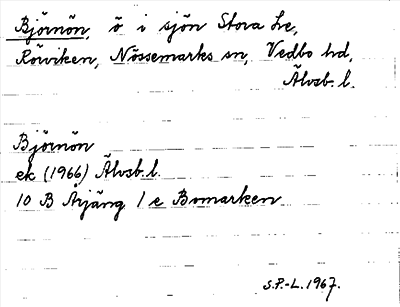 Björnön, ö i sjön Stora Le,
Rörviken, Nössemarks sn, Vedbo hd,
Älvsb. l.
Björnön
ek (1966) Älvsb. l.
10 B Årjäng 1 e Bomarken
S.P.-L. 1967.